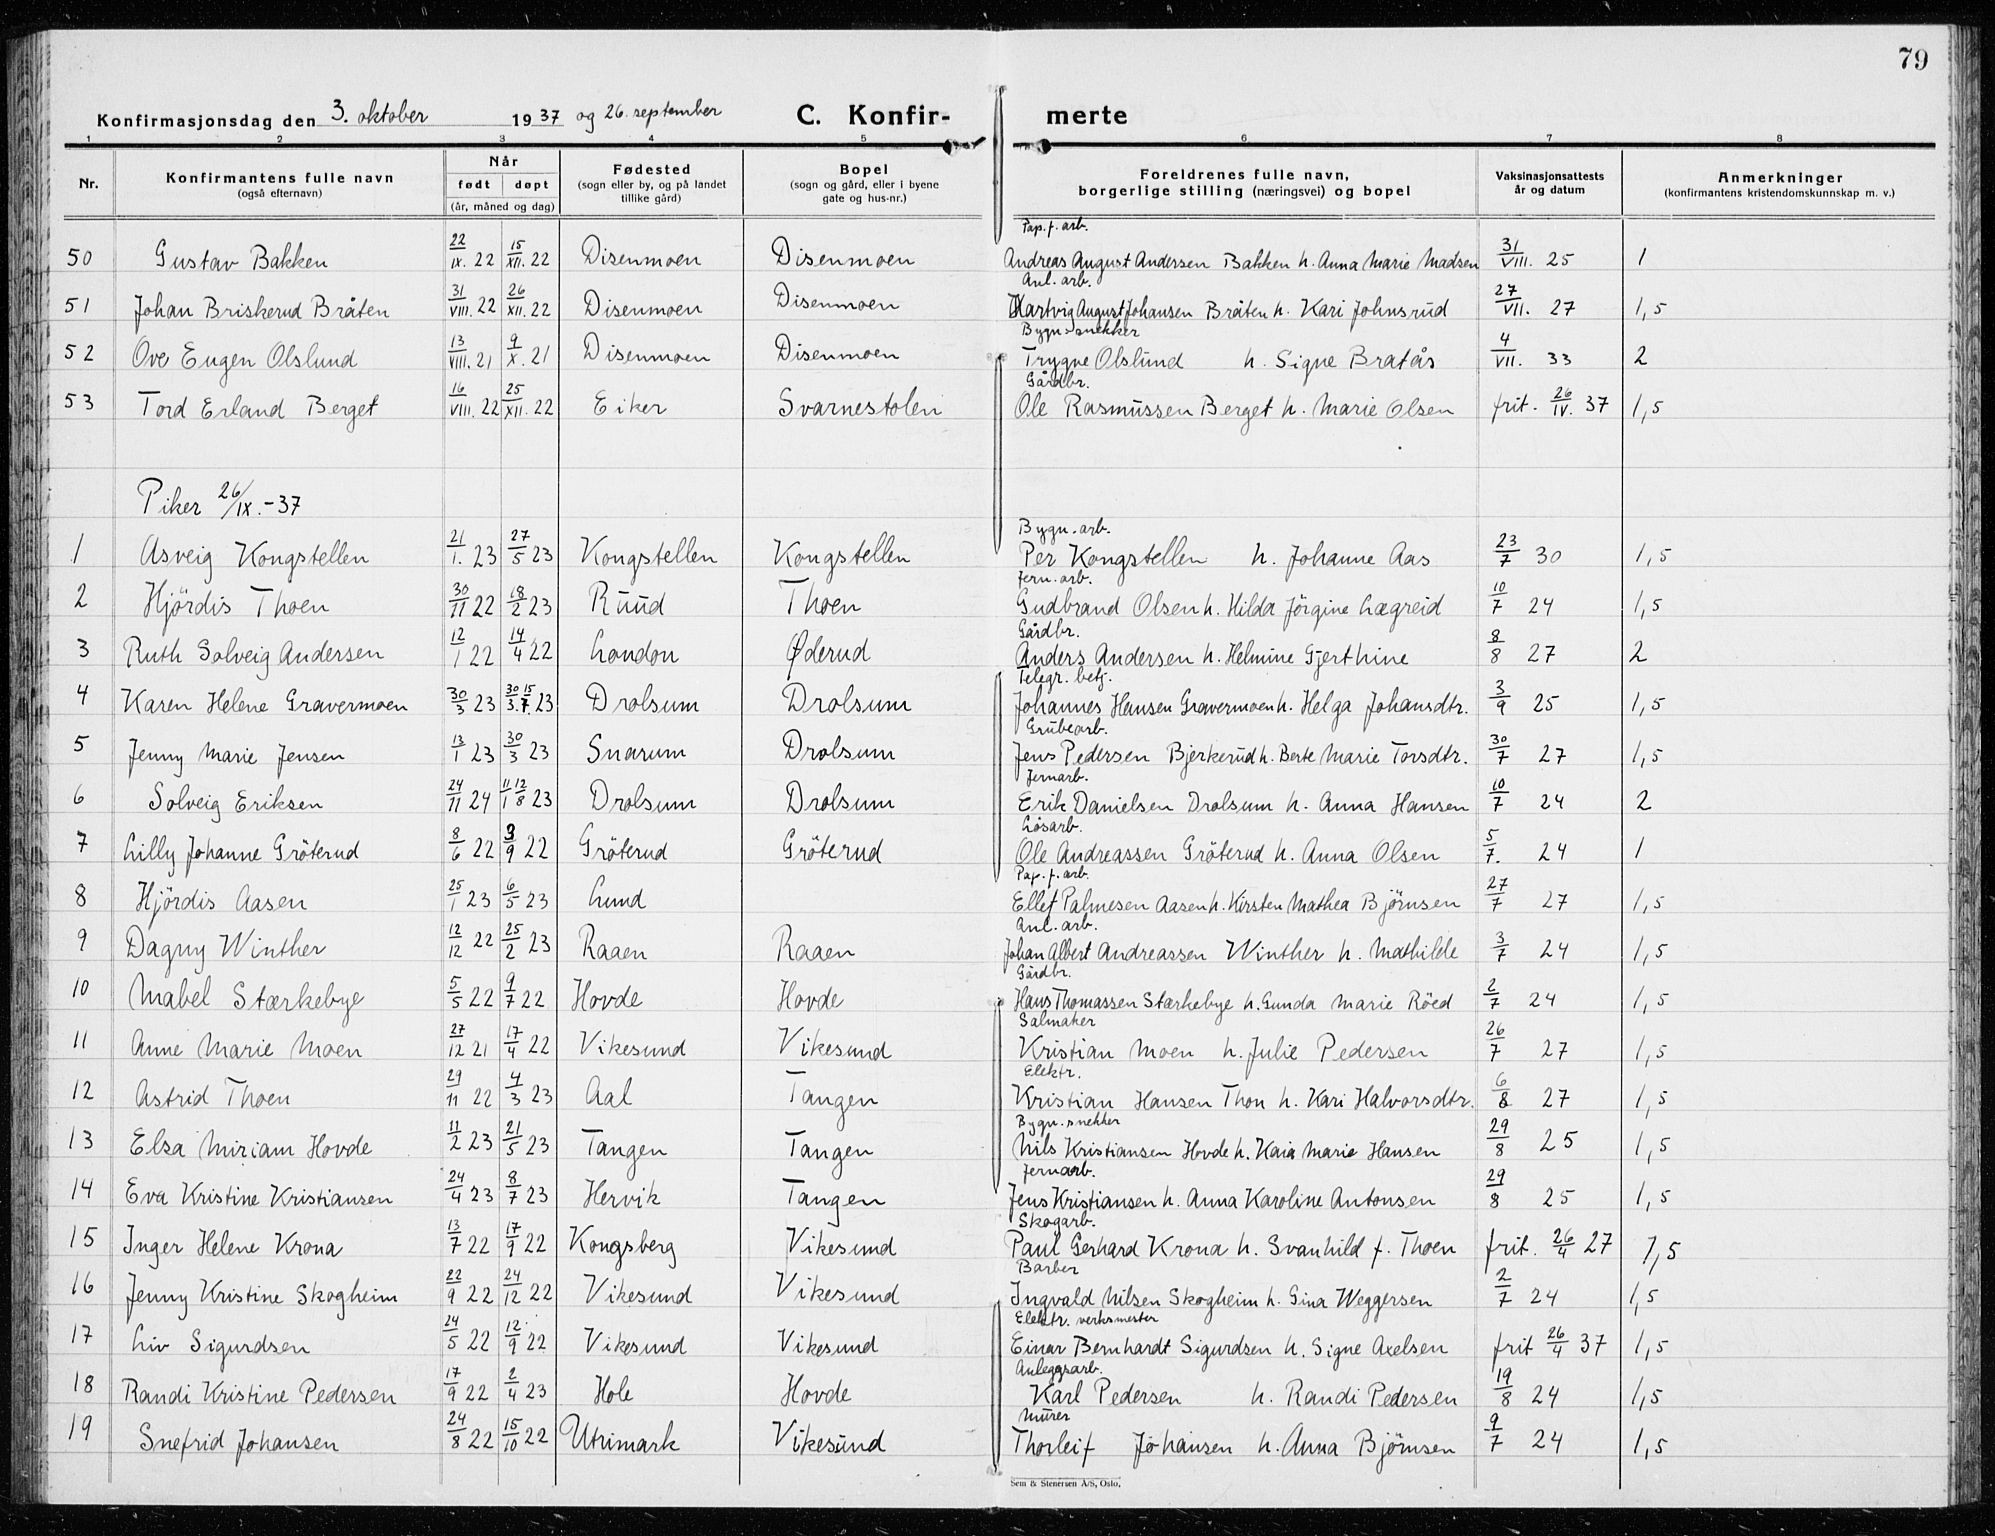 79
Konfirmasjonsdag den 3. oktober 1937 og 26. september C. Konfir- merte
1 2 3 4 5 6 7 8
Nr. Konfirmantens fulle navn (også efternavn) Når født døpt (år, måned og dag) Fødested (sogn eller by, og på landet tillike gård) Bopel (sogn og gård, eller i byene gate og hus-nr.) Foreldrenes fulle navn, borgerlige stilling (næringsvei) og bopel Vaksinasjonsattests år og datum Anmerkninger (konfirmantens kristendomskunnskap m. v.)
Pap. f. arb.
50 Gustav Bakken 22/IX. 22 15/XII. 22 Disenmoen Disenmoen Andreas August Andersen Bakken h. Anna Marie Madsen 31/VIII. 25 1
Anl. arb.
51 Johan Briskerud Bråten 31/VIII. 22 26/XII. 22 Disenmoen Disenmoen Hartvig August Johansen Bråten h. Kari Johnsrud 27/VII. 27 1,5
Bygn.snekker
52 Ove Eugen Olslund 13/VIII. 21 9/X. 21 Disenmoen Disenmoen Trygve Olslund h. Signe Bratås 4/VII. 33 2
Gårdbr.
53 Tord Erland Berget 16/VIII. 22 25/XII. 22 Eiker Svarnestolen Ole Rasmussen Berget h. Marie Olsen frit. 26/IV. 37 1,5
Piker 26/IX.-37
Bygn.arb.
1 Asveig Kongstellen 21/1. 23 27/5 23 Kongstellen Kongstellen Per Kongstellen h. Johanne Aas 23/7 30 1,5
Jern.arb.
2 Hjördis Thoen 30/11 22 18/2 23 Ruud Thoen Gudbrand Olsen h. Hilda Jörgine Lægreid 10/7 24 1,5
Gårdbr.
3 Ruth Solveig Andersen 12/1 22 14/4 22 London Øderud Anders Andersen h. Helmine Gjerthine 8/8 27 2
Telegr. betj.
4 Karen Helene Gravermoen 30/3 23 30/3. 15/7. 23 Drolsum Drolsum Johannes Hansen Gravermoen h. Helga Johansdtr. 3/9 25 1,5
Grubearb.
5 Jenny Marie Jensen 13/1 23 30/3 23 Snarum Drolsum Jens Pedersen Bjerkerud h. Berte Marie Torsdtr. 30/7 27 1,5
Jernarb.
6 Solveig Eriksen 24/11 24 11/1 12/8 23 Drolsum Drolsum Erik Danielsen Drolsum h. Anna Hansen 10/7 24 2
Løsarb.
7 Lilly Johanne Gröterud 8/6 22 3/9 22 Gröterud Gröterud Ole Andreassen Gröterud h. Anna Olsen 5/7. 24 1
Pap. f. arb.
8 Hjördis Aasen 25/1 23 6/5 23 Lund Ellef Palmesen Aasen h. Kirsten Mathea Björnsen 27/7 27 1,5
Anl. arb.
9 Dagny Winther 12/12 22 25/2 23 Raaen Raaen Johan Albert Andreassen Winther h. Mathilde 3/7 24 1,5
Gårdbr.
10 Mabel Stærkebye 5/5 22 9/7 22 Hovde Hovde Hans Thomassen Stærkebye h. Gunda Marie Röed 2/7 24 1,5
Salmaker
11 Anne Marie Moen 27/12 21 17/4 22 Vikesund Vikesund Kristian Moen h. Julie Pedersen 26/7 27 1,5
Elektr.
12 Astrid Thoen 29/11 22 4/3 23 Aal Tangen Kristian Hansen Thon h. Kari Halvorsdtr. 6/8 27 1,5
Bygn.snekker
13 Elsa Miriam Hovde 11/2 23 21/5 23 Tangen Tangen Nils Kristiansen Hovde h. Kaia Marie Hansen 29/8 25 1,5
Jernarb.
14 Eva Kristine Kristiansen 24/4 23 8/7 23 Hervik Tangen Jens Kristiansen h. Anna Karoline Antonsen 29/8 25 1,5
Skogarb.
15 Inger Helene Krona 13/7 22 17/9 22 Kongsberg Vikesund Paul Gerhard Krona h. Svanhild f. Thoen frit. 26/4 27 1,5
Barber
16 Jenny Kristine Skogheim 22/9 22 24/12 22 Vikesund Vikesund Ingvald Nilsen Skogheim h. Gina Weggersen 2/7 24 1,5
Elektr. verksmester
17 Liv Sigurdsen 24/5 22 12/9 22 Vikesund Vikesund Einar Bernhardt Sigurdsen h. Signe Axelsen frit 26/4 37 1,5
Anleggsarb.
18 Randi Kristine Pedersen 17/9 22 2/4 23 Hole Hovde Karl Pedersen h. Randi Pedersen 19/8 24 1,5
Murer
19 Snefrid Johansen 24/8 22 15/10 22 Utrimark Vikesund Thorleif Johansen h. Anna Björnsen 9/7 24 1,5
Sem & Stenersen A/S, Oslo.